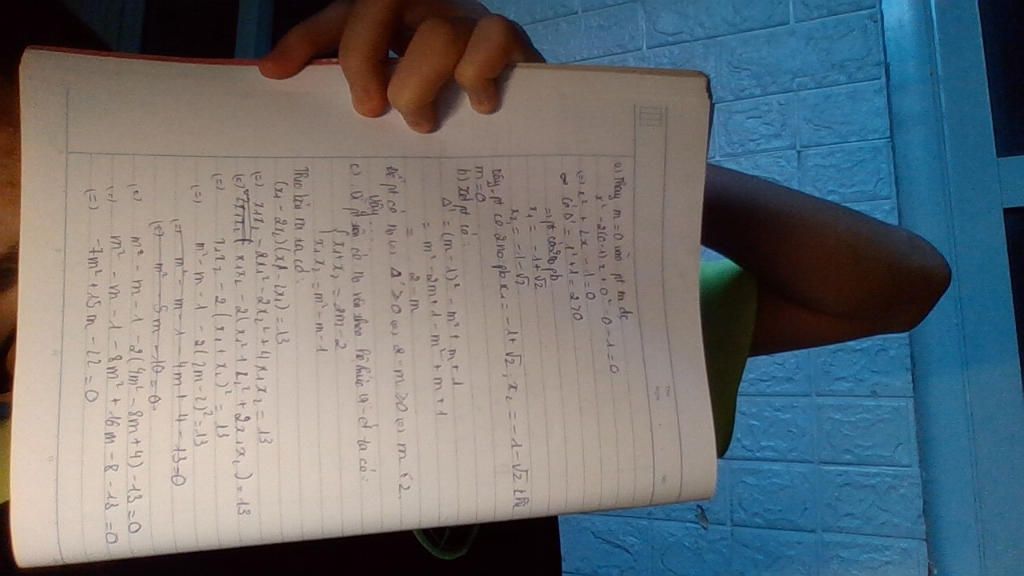 a) Thay m = 0 vào pt ta đc
x² - 2(0-1)x + 0² - 0 - 1 = 0
(=) x² + 2x - 1 = 0
Có Δ' = 1² + 1 = 2 > 0
=) pt có 2 no pb
x₁ = -1 + √2
x₂ = -1 - √2
Vậy pt có 2 no pb x₁ = -1 + √2, x₂ = -1 - √2 khi
m = 0
b) Xét pt có:
Δ' = (m - 1)² - m² + m + 1
= m² - 2m + 1 - m² + m + 1
= 2 - m
Để pt có no (=) Δ' ≥ 0 (=) 2 - m ≥ 0 (=) m ≤ 2.
Vậy ...
c) Để pt có no theo hệ thức Vi-ét ta có:
{ x₁ + x₂ = 2m - 2
x₁x₂ = m² - m - 1
Theo bài ra ta có:
(x₁ - 2x₂)(x₂ - 2x₁) = 13
(=) x₁x₂ - 2x₁² - 2x₂² + 4x₁x₂ = 13
(=) x₁x₂ - 2(x₁² + x₂² + 2x₁x₂) = 13
(=) x₁x₂ - 2(x₁ + x₂)² = 13
(=) m² - m - 1 - 2(2m - 2)² = 13
(=) m² - m - 1 - 4m + 4 - 13 = 0
(=) m² - 5m - 10 = 0
(=) m² - m - 1 - 2(4m² - 8m + 4) - 13 = 0
(=) m² - m - 1 - 8m² + 16m - 8 - 13 = 0
(=) -7m² + 15m - 22 = 0